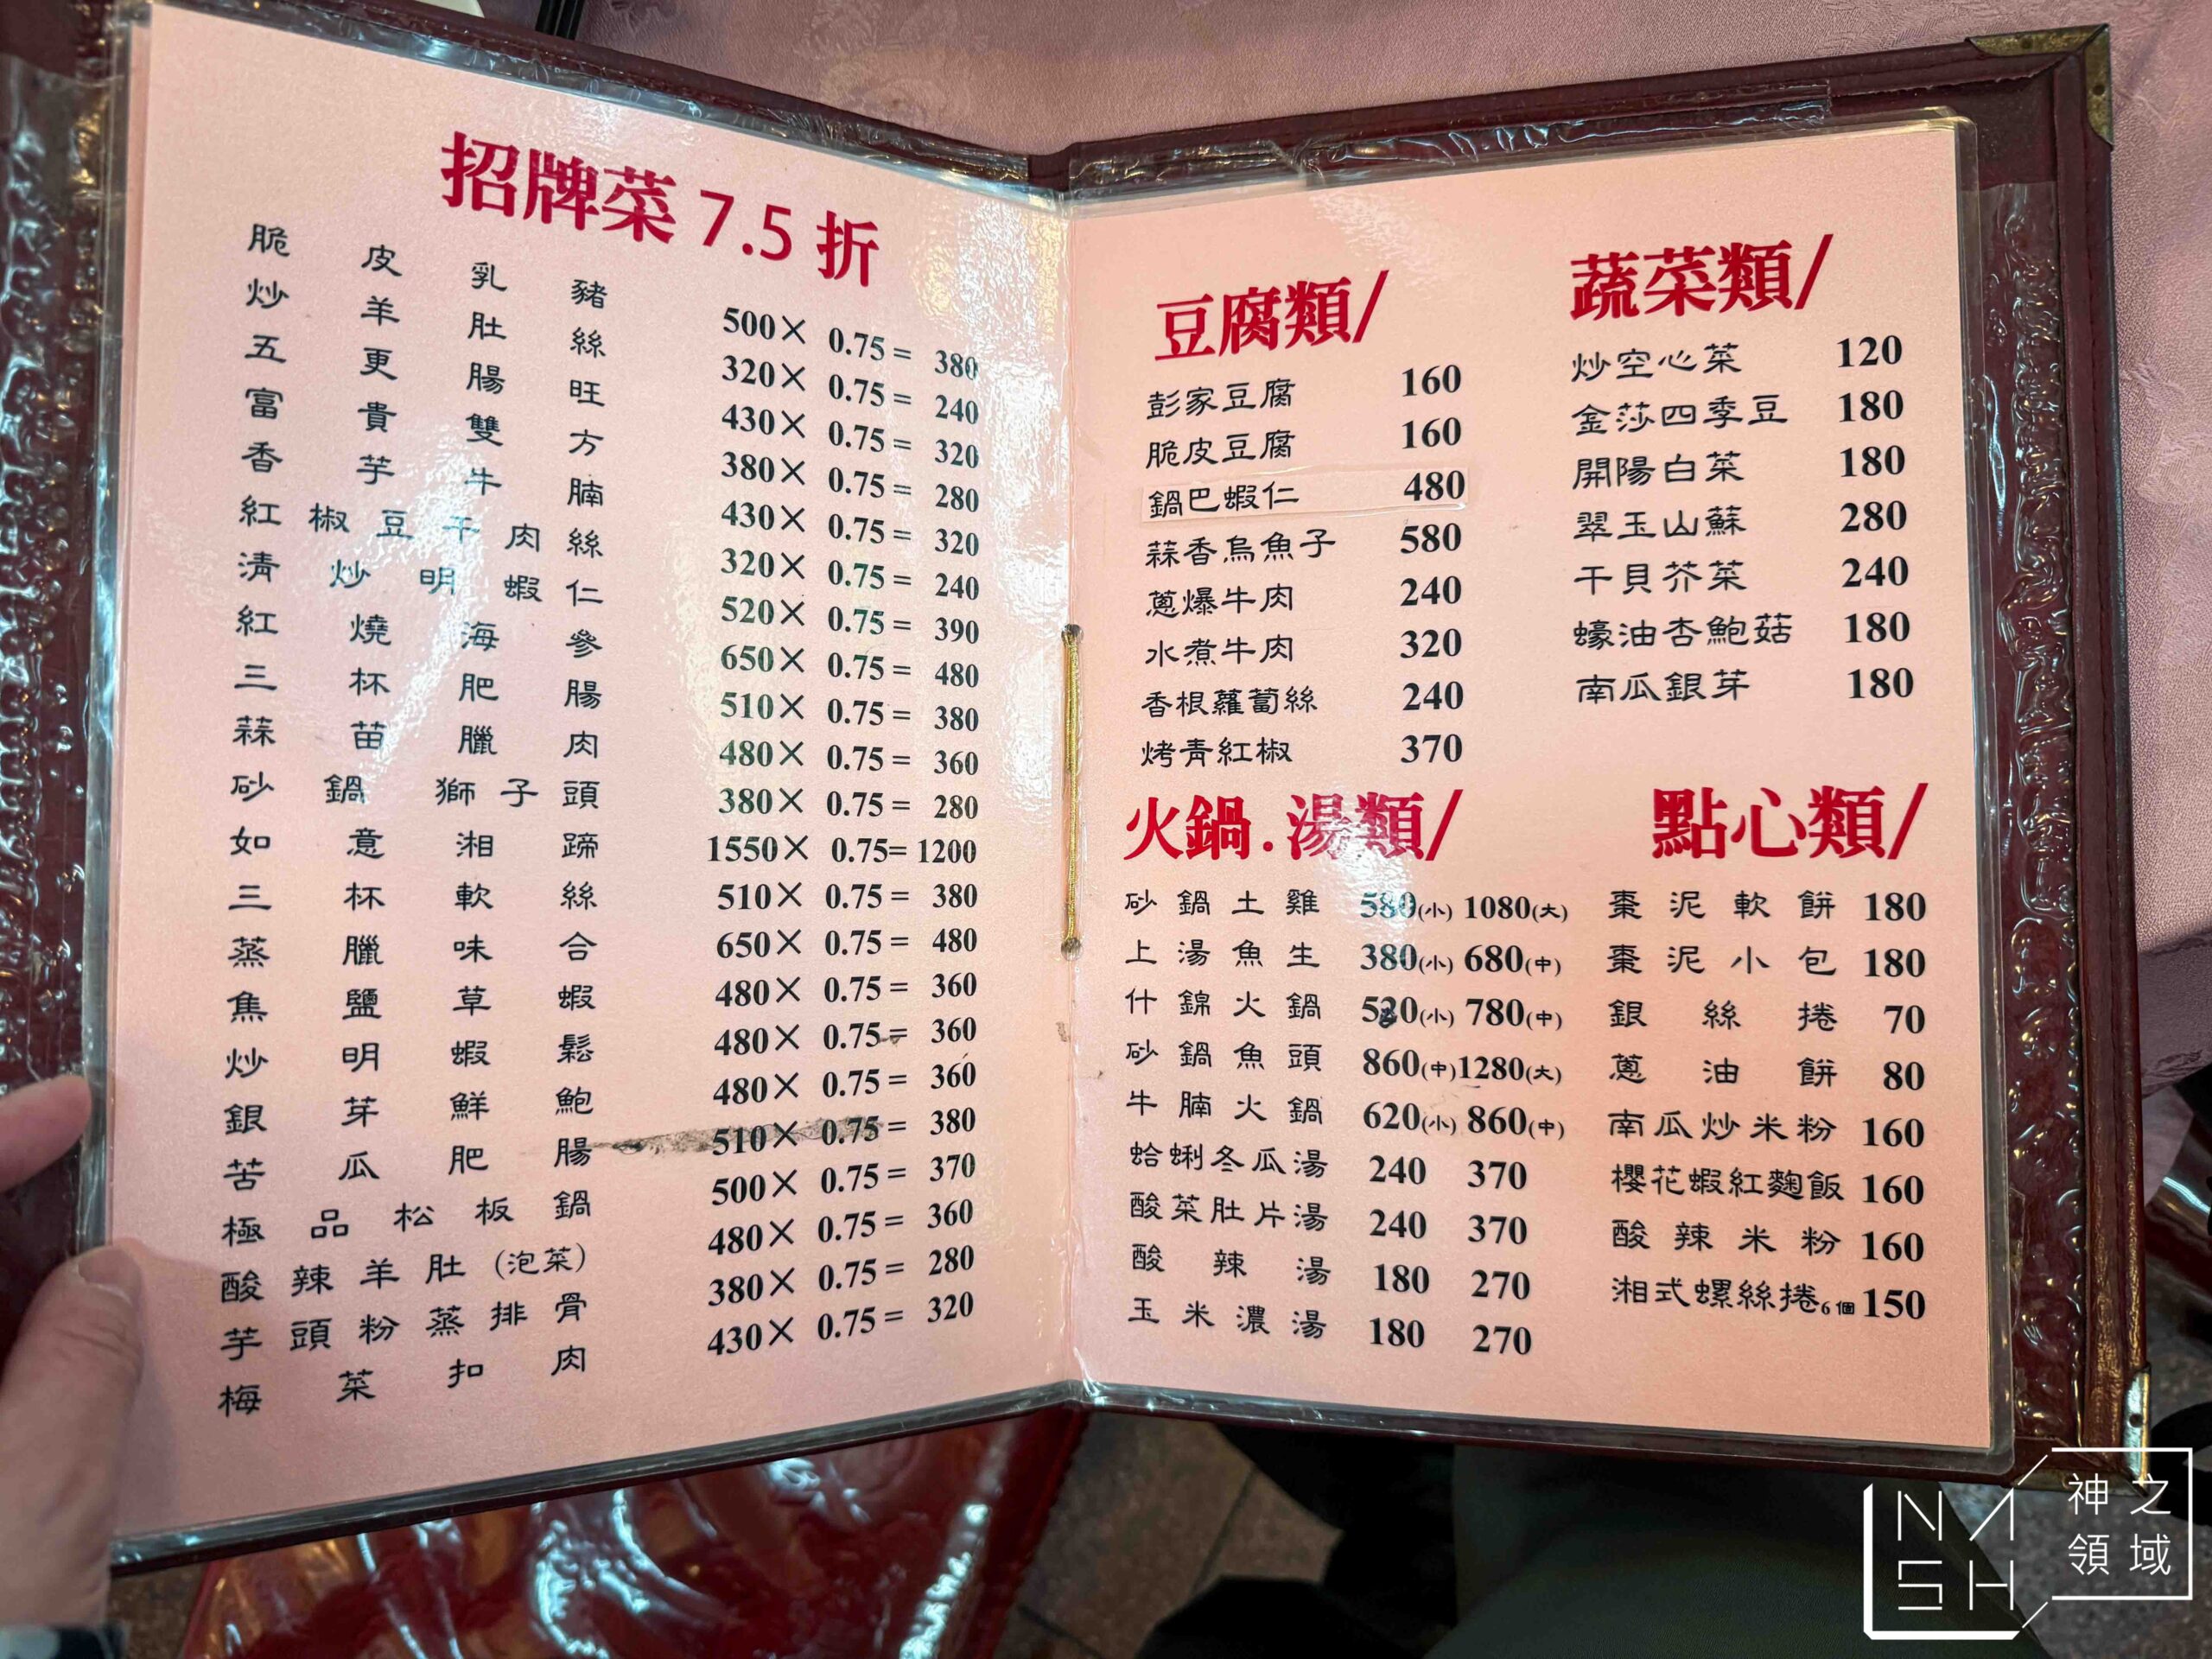 招牌菜 7.5 折
脆皮乳豬 500× 0.75= 380
炒羊肚絲 320× 0.75= 240
五更腸旺 430× 0.75= 320
富貴雙方 380× 0.75= 280
香芋牛腩 430× 0.75= 320
紅椒豆干肉絲 320× 0.75= 240
清炒明蝦仁 520× 0.75= 390
紅燒海參 650× 0.75= 480
三杯肥腸 510× 0.75= 380
蒜苗臘肉 480× 0.75= 360
砂鍋獅子頭 380× 0.75= 280
如意湘蹄 1550× 0.75= 1200
三杯軟絲 510× 0.75= 380
蒸臘味合 650× 0.75= 480
焦鹽草蝦 480× 0.75= 360
炒明蝦鬆 480× 0.75= 360
銀芽鮮鮑 480× 0.75= 360
苦瓜肥腸 510× 0.75= 380
極品松板鍋 500× 0.75= 370
酸辣羊肚(泡菜) 480× 0.75= 360
芋頭粉蒸排骨 380× 0.75= 280
梅菜扣肉 430× 0.75= 320
豆腐類/
彭家豆腐 160
脆皮豆腐 160
鍋巴蝦仁 480
蒜香烏魚子 580
蔥爆牛肉 240
水煮牛肉 320
香根蘿蔔絲 240
烤青紅椒 370
蔬菜類/
炒空心菜 120
金莎四季豆 180
開陽白菜 180
翠玉山蘇 280
干貝芥菜 240
蠔油杏鮑菇 180
南瓜銀芽 180
火鍋.湯類/
砂鍋土雞 580(小) 1080(大)
上湯魚生 380(小) 680(中)
什錦火鍋 (小) 780(中)
砂鍋魚頭 860(中) 1280(大)
牛腩火鍋 620(小) 860(中)
蛤蜊冬瓜湯 240 370
酸菜肚片湯 240 370
酸辣湯 180 270
玉米濃湯 180 270
點心類/
棗泥軟餅 180
棗泥小包 180
銀絲捲 70
蔥油餅 80
南瓜炒米粉 160
櫻花蝦紅麴飯 160
酸辣米粉 160
湘式螺絲捲6個 150
NASH
神之領域